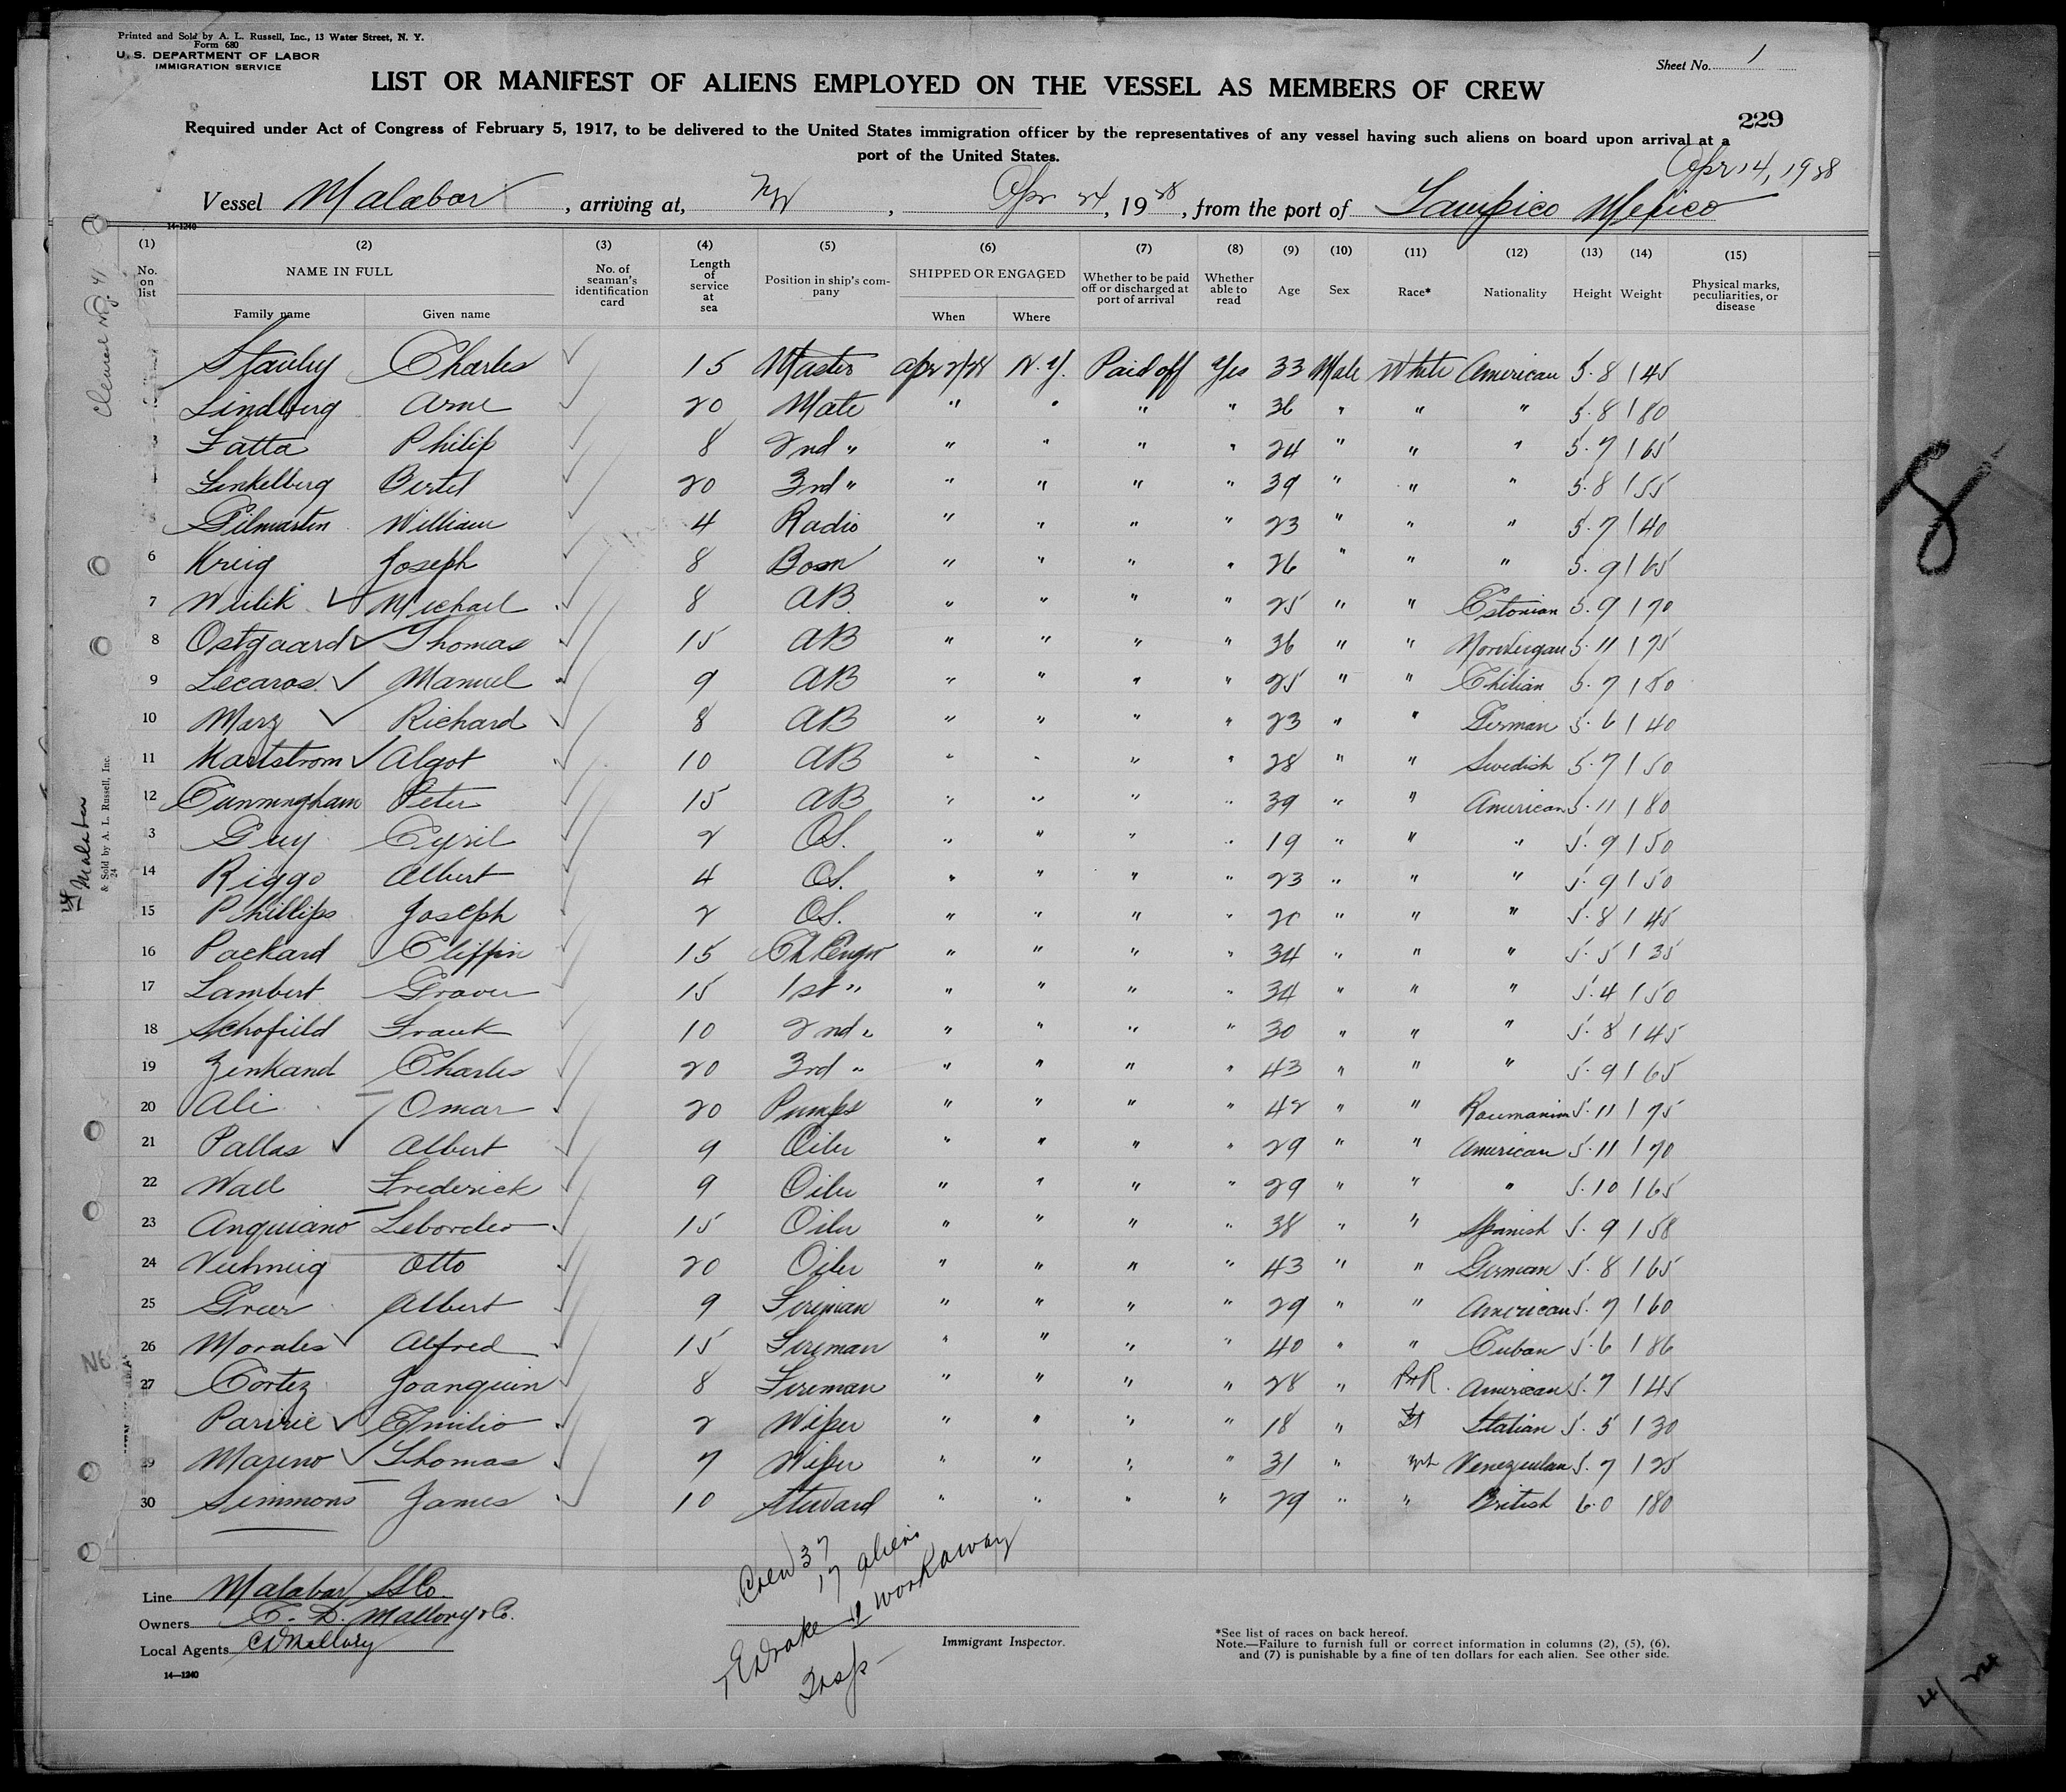 Printed and Sold by A. L. Russell, Inc., 13 Water Street, N. Y.
Form 680
U. S. DEPARTMENT OF LABOR
IMMIGRATION SERVICE
Sheet No. 1
LIST OR MANIFEST OF ALIENS EMPLOYED ON THE VESSEL AS MEMBERS OF CREW
229
Required under Act of Congress of February 5, 1917, to be delivered to the United States immigration officer by the representatives of any vessel having such aliens on board upon arrival at a
port of the United States.
Apr 14, 1928
Vessel Malabar, arriving at, NY, Apr 24, 1928, from the port of Tampico Mexico
14-1240
(1) (2) (3) (4) (5) (6) (7) (8) (9) (10) (11) (12) (13) (14) (15)
No. on list NAME IN FULL No. of seaman's identification card Length of service at sea Position in ship's company SHIPPED OR ENGAGED Whether to be paid off or discharged at port of arrival Whether able to read Age Sex Race* Nationality Height Weight Physical marks, peculiarities, or disease
Family name Given name When Where
Stanley Charles 15 Master Apr N.Y. Paid off Yes 33 Male White American 5.8 145
Lindberg Arne 20 Mate " " " " 36 " " " 5.8 180
3 Fatta Philip 8 2nd " " " " " 24 " " " 5.7 165
4 Linkelberg Bertel 20 3rd " " " " " 39 " " " 5.8 155
5 Gilmartin William 4 Radio " " " " 23 " " " 5.7 140
6 Kreig Joseph 8 Bosn " " " " 26 " " " 5.9 165
7 Michael 8 AB " " " " 25 " " Estonian 5.9 170
8 Ostgaard Thomas 15 AB " " " " 36 " " Norweigan 5.11 175
9 Lecaros Manuel 9 AB " " " " 25 " " Chilian 5.7 180
10 Marz Richard 8 AB " " " " 23 " " German 5.6 140
11 Algot 10 AB " " " " 28 " " Swedish 5.7 150
12 Cunningham Peter 15 AB " " " " 39 " " American 5.11 180
13 Guy Cyril 2 OS. " " " " 19 " " " 5.9 150
14 Riggo Albert 4 OS. " " " " 23 " " " 5.9 150
15 Phillips Joseph 2 OS. " " " " 20 " " " 5.8 145
16 Packard Cliffin 15 Ch Engr " " " " 34 " " " 5.5 135
17 Lambert Grover 15 1st " " " " " 34 " " " 5.4 150
18 Schofield Frank 10 2nd " " " " " 30 " " " 5.8 145
19 Zenkand Charles 20 3rd " " " " " 43 " " " 5.9 165
20 Ali Omar 20 Pumps " " " " 42 " " Roumanian 5.11 175
21 Pallas Albert 9 Oiler " " " " 29 " " American 5.11 170
22 Wall Frederick 9 Oiler " " " " 29 " " " 5.10 165
23 Anquiano Lebordeo 15 Oiler " " " " 38 " " Spanish 5.9 158
24 Otto 20 Oiler " " " " 43 " " German 5.8 165
25 Greer Albert 9 Fireman " " " " 29 " " American 5.7 160
26 Morales Alfred 15 Fireman " " " " 40 " " Cuban 5.6 186
27 Cortez Joanquin 8 Fireman " " " " 28 " P.R. American 5.7 145
Emilio 2 Wiper " " " " 18 " It Italian 5.5 130
29 Mareno Thomas 7 Wiper " " " " 31 " Venezeulan 5.7 125
30 Simmons James 10 Steward " " " " 29 " " British 6.0 180
Crew 37
17 aliens
1 workaway
Line Malabar SS Co.
Owners C. D. Mallory & Co.
Local Agents C D Mallory
14—1240
E Drake
Insp
Immigrant Inspector.
*See list of races on back hereof.
Note.—Failure to furnish full or correct information in columns (2), (5), (6),
and (7) is punishable by a fine of ten dollars for each alien. See other side.
Malabar
& Sold by A. L. Russell, Inc.
24
8
4/24